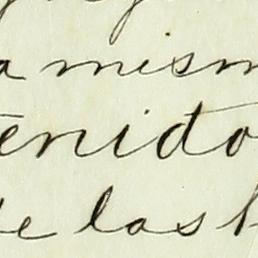 a mism
enido
e las